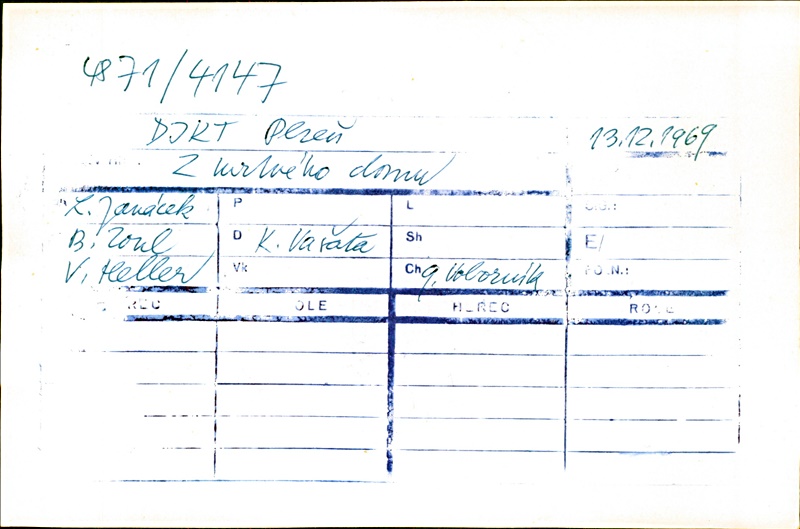 4871/4147
DJKT Plzeň
13.12.1969
Z mrtvého domu
L. Janáček P L
B. Zoul D K. Vašata Sh E/
V. Heller Vk Ch g. Voborník FO.N.:
REC OLE HEREC ROLE